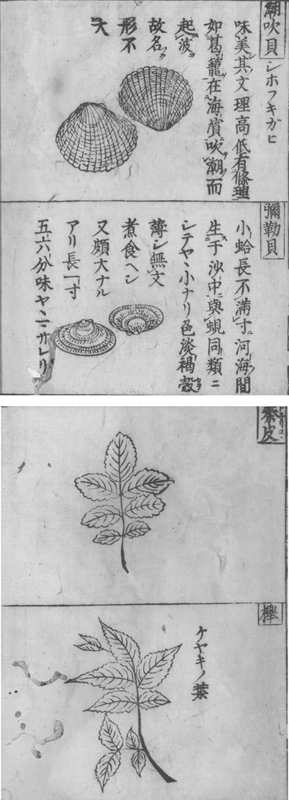 潮吹貝 シホフキガヒ
味美其文理高低有條理
如葛籠在海濱吹潮而
起波
故名
形不
大
彌勒貝
小蛤長不滿寸河海間
生于沙中與蜆同類ニ
シテヤヽ小ナリ色淡褐殼
薄シ無文
煮食ヘシ
又頗大ナル
アリ長一寸
五六分味ヤヽニガレリ
秦皮
櫸
ケヤキノ葉